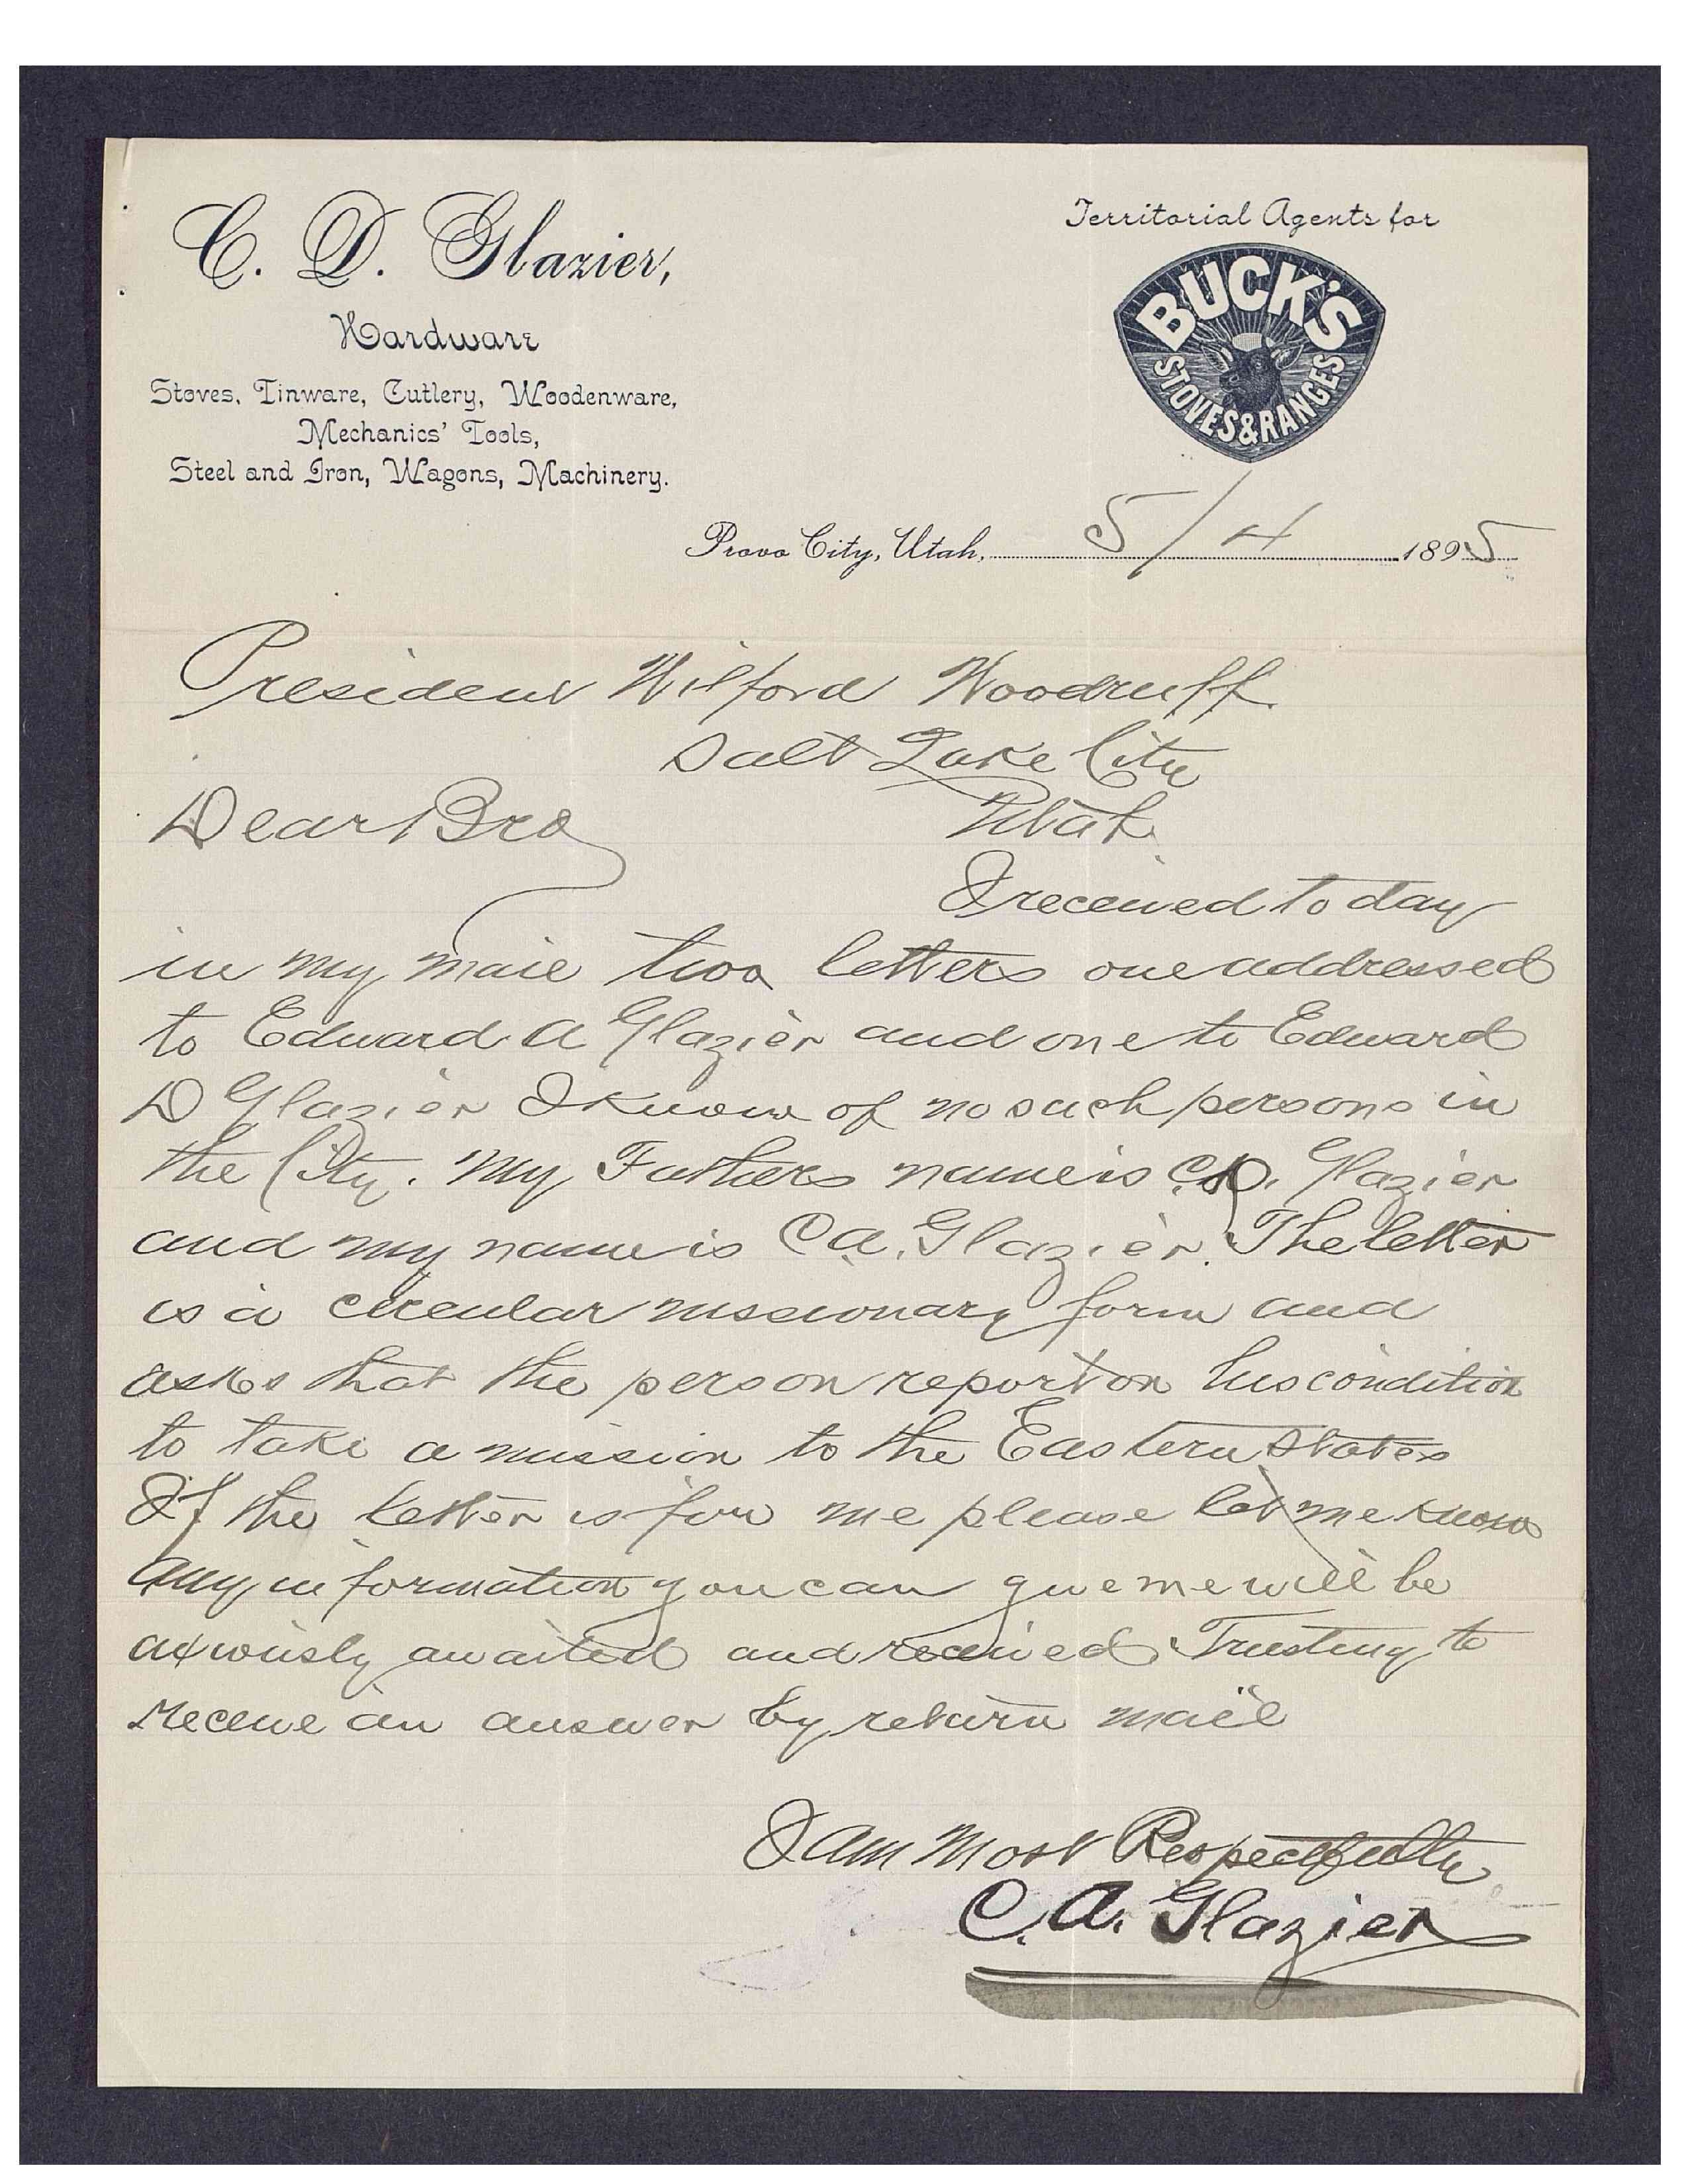 C. D. Glazier,
Hardware
Stoves, Tinware, Cutlery, Woodenware,
Mechanics' Tools,
Steel and Iron, Wagons, Machinery.
Territorial Agents for
BUCK'S
STOVES & RANGES
Provo City, Utah, 5/4 1895
President Wilford Woodruff
Salt Lake City
Utah
Dear Bro
I received to day
in my mail two letters one addressed
to Edward A Glazier and one to Edward
D Glazier I know of no such persons in
the City. My Fathers name is C.D. Glazier
and my name is C.A. Glazier. The letter
is a circular missionary form and
asks that the person report on his condition
to take a mission to the Eastern States
If the letter is for me please let me know
any information you can give me will be
axiously awaited and received Trusting to
receive an answer by return mail
I am Most Respectfully
C. A. Glazier